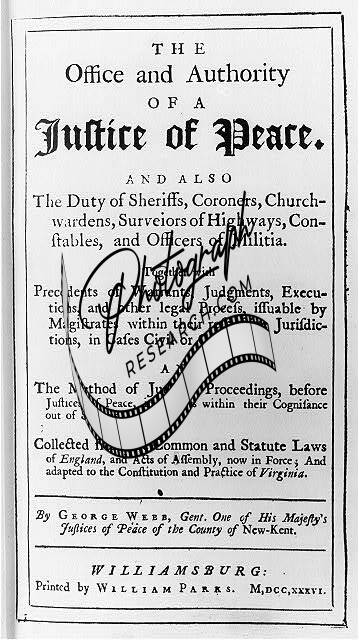 THE
Office and Authority
OF A
Juſtice of Peace.
AND ALSO
The Duty of Sheriffs, Coroners, Church-
wardens, Surveiors of Highways, Con-
ſtables, and Officers of Militia.
Together with
Precedents of Warrants, Judgments, Execu-
tions, and other legal Proceſs, iſſuable by
Magiſtrates within their Juriſdic-
tions, in Caſes Civil or
The Method of Proceedings, before
Juſtices of Peace, within their Cogniſance
out of
Collected Common and Statute Laws
of England, and Acts of Aſſembly, now in Force; And
adapted to the Conſtitution and Practice of Virginia.
By GEORGE WEBB, Gent. One of His Majeſty's
Juſtices of Peace of the County of New-Kent.
WILLIAMSBURG:
Printed by WILLIAM PARKS. M,DCC,XXXVI.
Photograph
RESEARCH.COM